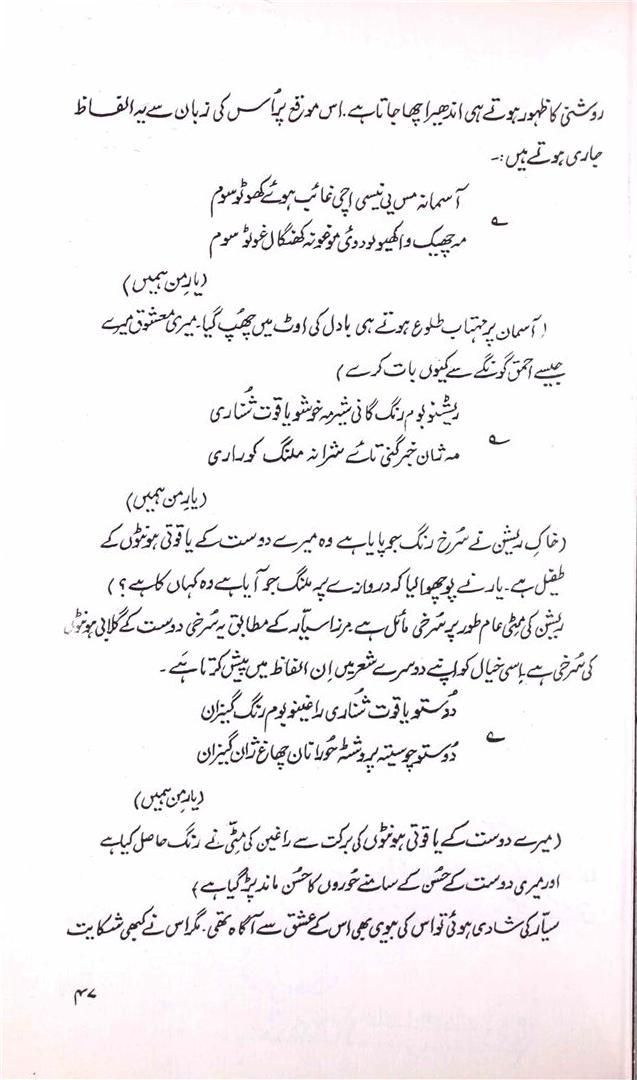 روشنی کا ظہور ہوتے ہی اندھیرا چھا جاتا ہے۔ اس موقع پر اُس کی زبان سے یہ الفاظ
جاری ہوتے ہیں:۔
آسمانہ مس یی نیسی اچی غائب ہوئے کھوٹو سوم
مہ چھیک وا کھیو لو دوئی موغونہ کھنگال غولو سوم
(یارِ من ہمیں)
(آسمان پر مہتاب طلوع ہوتے ہی بادل کی اوٹ میں چھپ گیا۔ میری معشوق میرے
جیسے احمق گونگے سے کیوں بات کرے)
ریشنو بوم رنگ گانی شیر مہ خوشو یاقوت شُناری
مہ ژان خبر گنی تائے سرانہ ملنگ کوراری
(یارِ من ہمیں)
(خاکِ ریشن نے سُرخ رنگ جو پایا ہے وہ میرے دوست کے یاقوتی ہونٹوں کے
طفیل ہے۔ یار نے پوچھوا لیا کہ دروازے پر ملنگ جو آیا ہے وہ کہاں کا ہے؟)
ریشن کی مٹی عام طور پر سُرخی مائل ہے مرزا سیّار کے مطابق یہ سُرخی دوست کے گلابی ہونٹوں
کی سُرخی ہے اسی خیال کو اپنے دوسرے شعر میں اِن الفاظ میں پیش کرتا ہَے۔
دُوستو یاقوت شُناری راغینو بوم رنگ گیزان
دُوستو چوستہ پروشٹہ حُورانان چھاغ ژان گیزان
(یارِ من ہمیں)
(میرے دوست کے یاقوتی ہونٹوں کی برکت سے راغین کی مٹّی نے رنگ حاصل کیا ہے
اور میری دوست کے حُسن کے سامنے حُوروں کا حُسن ماند پڑ گیا ہے)
سیّار کی شادی ہوئی تو اس کی بیوی بھی اس کے عشق سے آگاہ تھی۔ مگر اس نے کبھی شکایت
۴۷